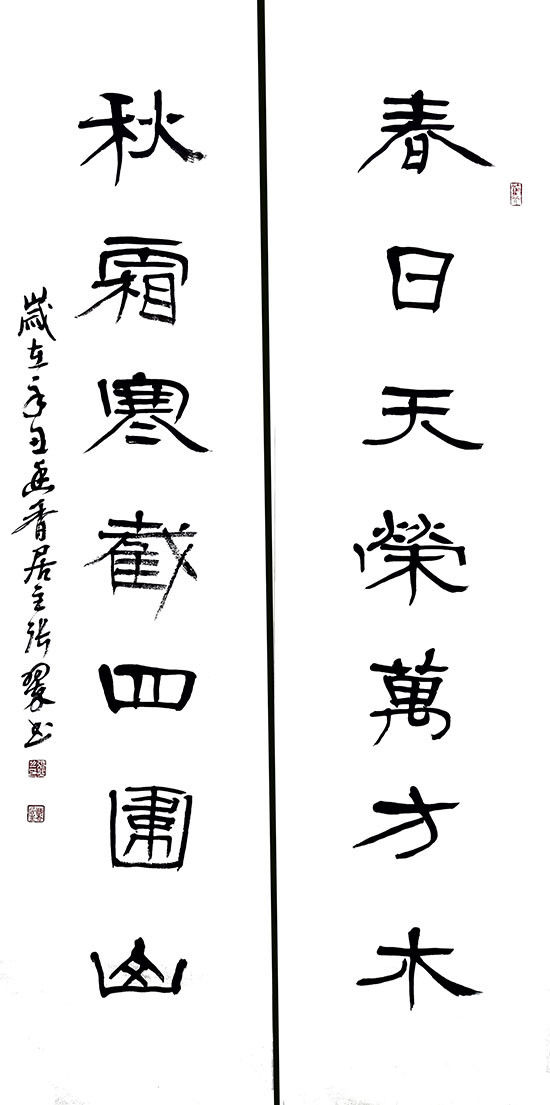 春日天榮萬方木
秋霜寒截四圍山
歲在辛丑香居主張書